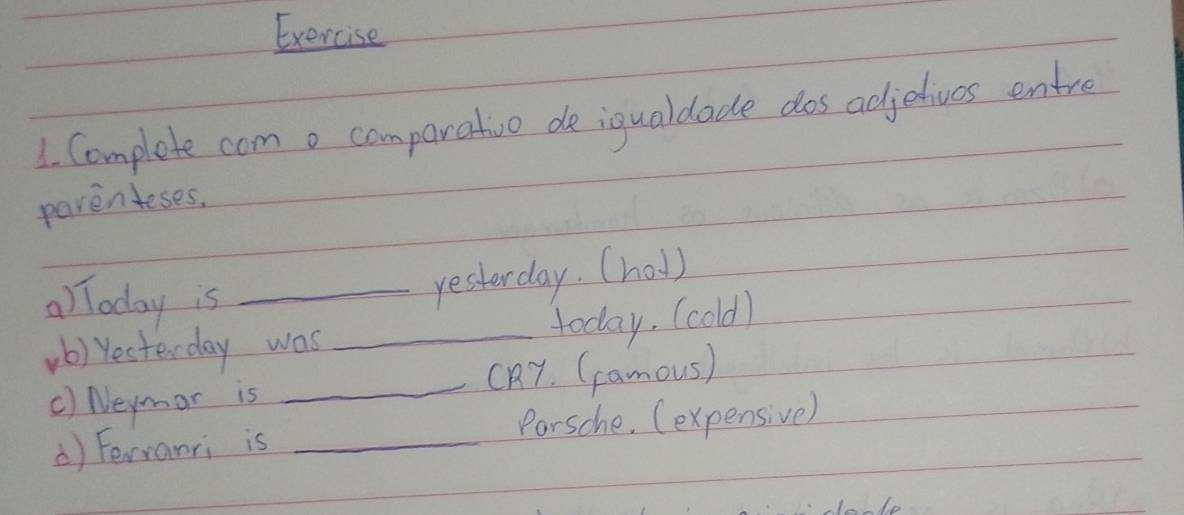 Exercise
1. Complete com o comparativo de igualdade dos adjetivos entre
parênteses.
a) Today is ________ yesterday. (hot)
b) Yesterday was ________ today. (cold)
c) Neymar is ________ CR7. (famous)
d) Ferranri is ________ Porsche. (expensive)